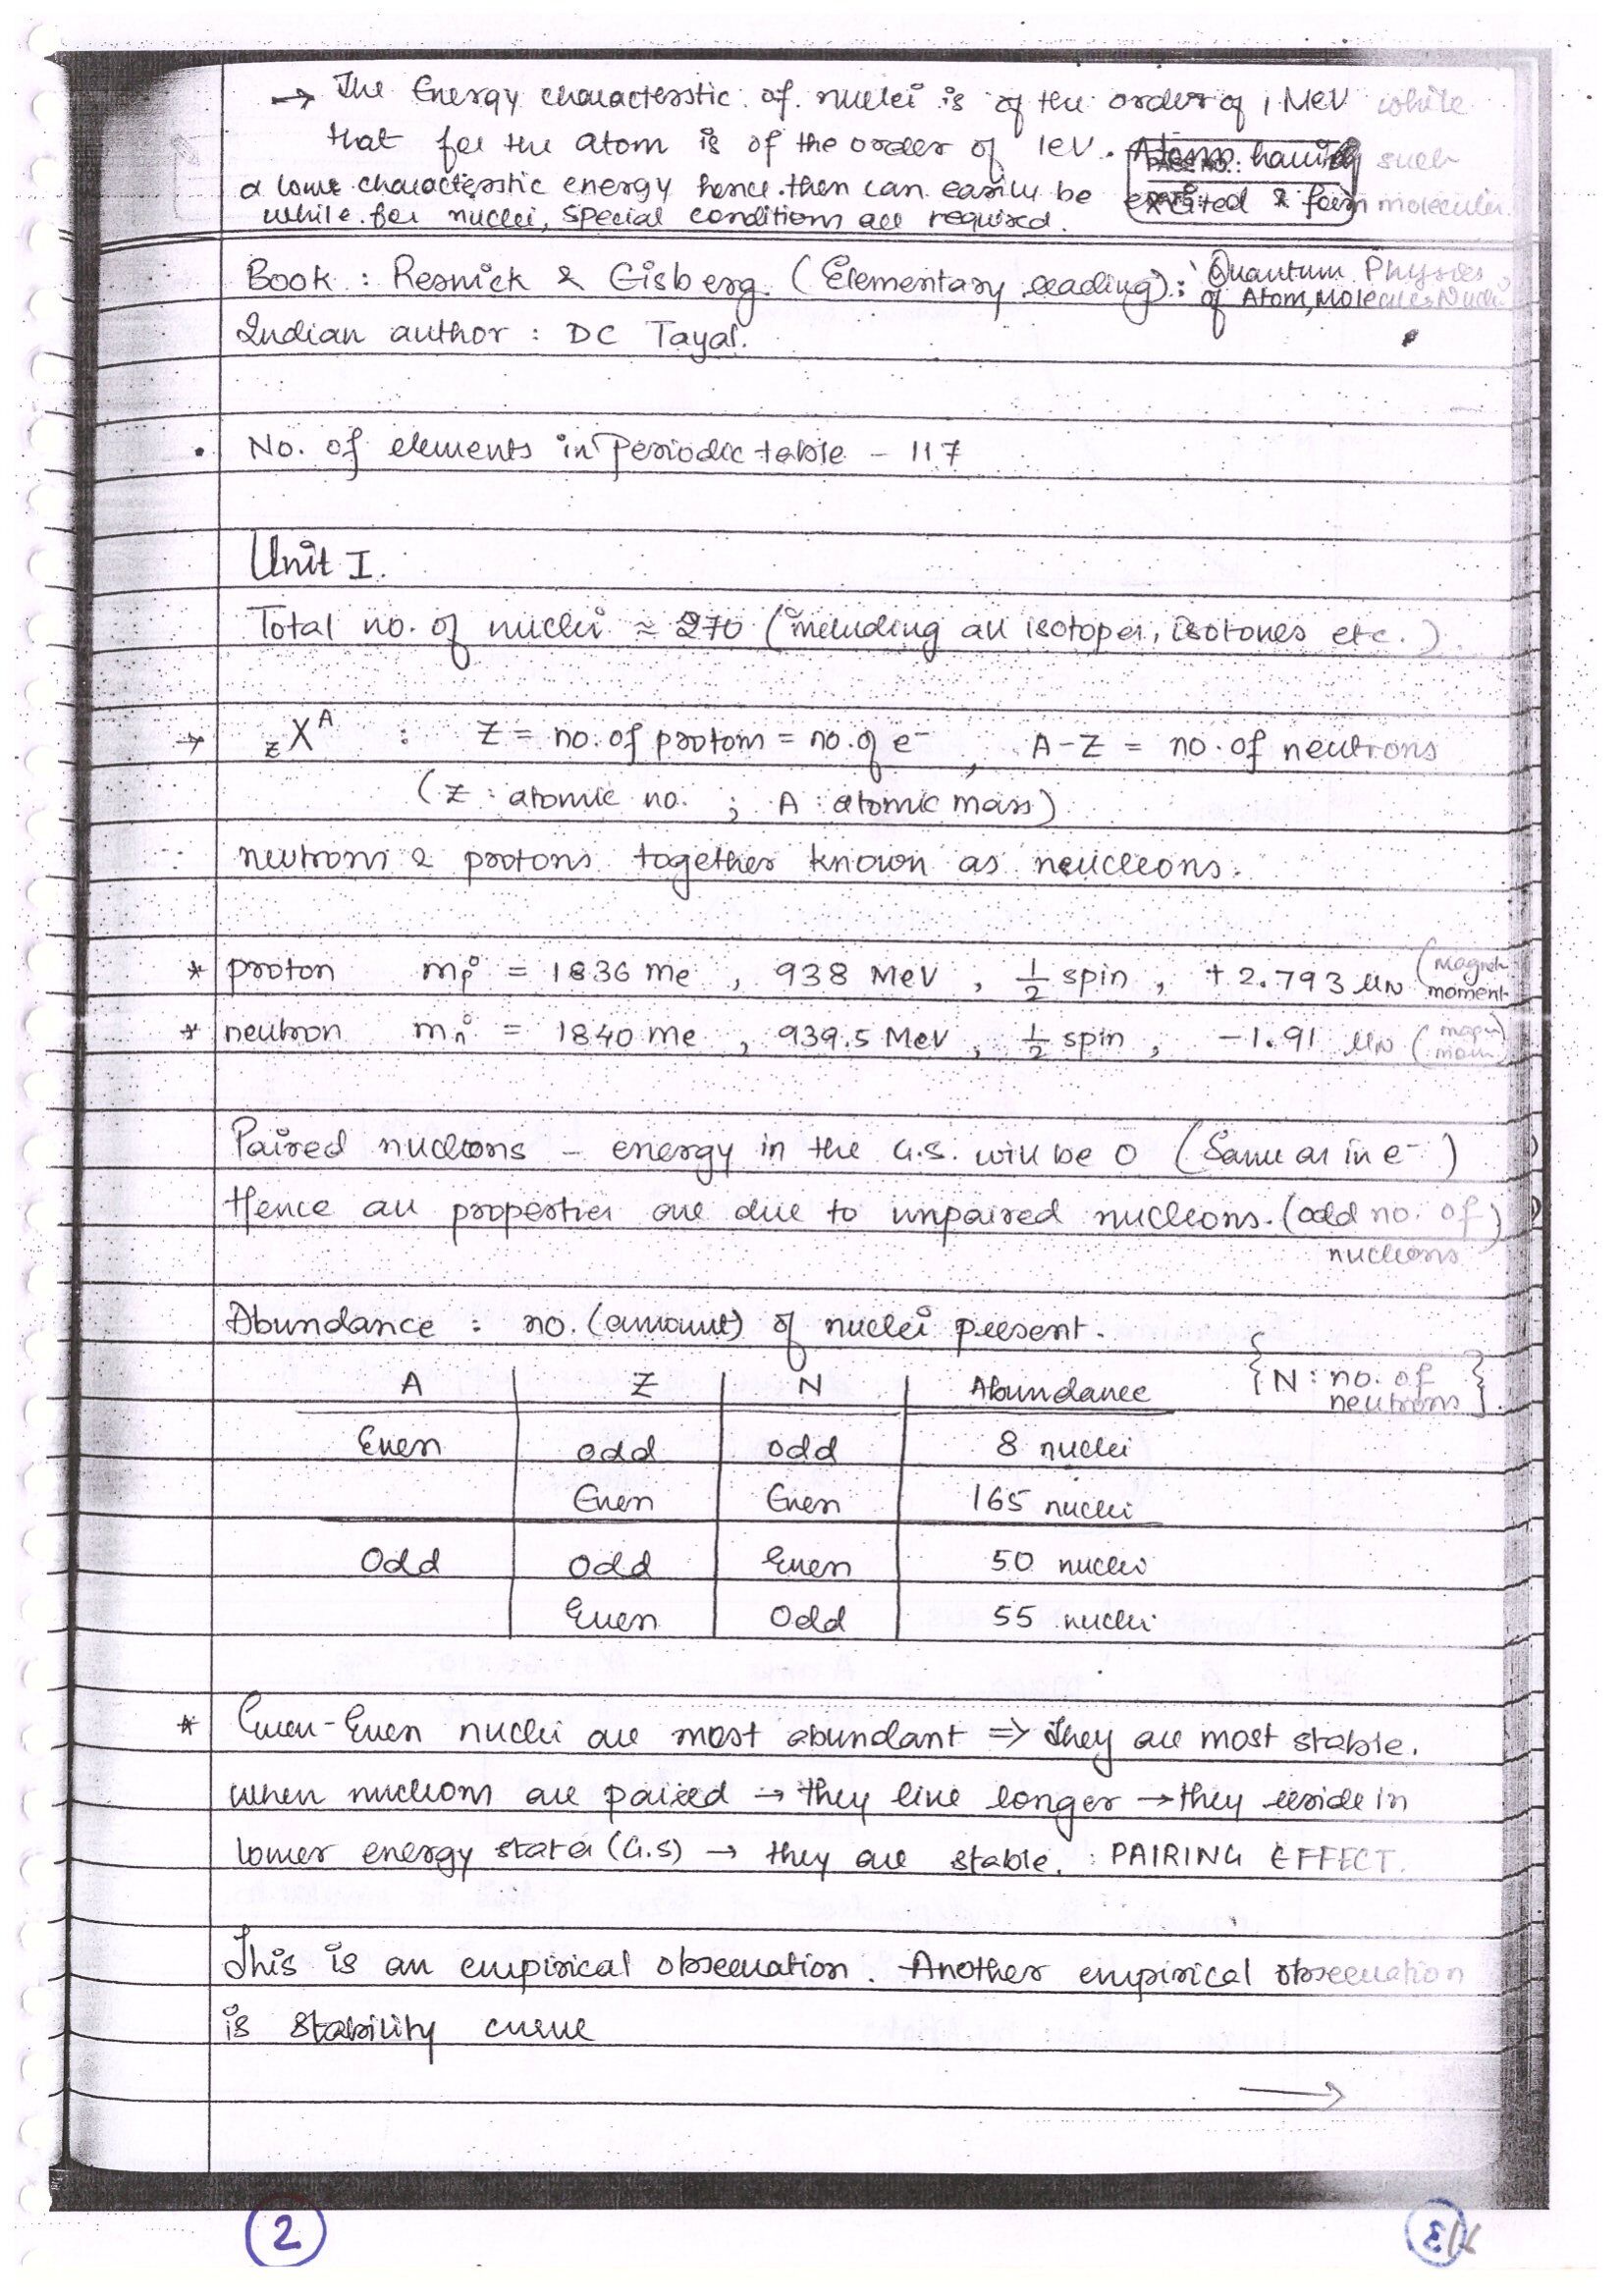 → The Energy characterstic of nuclei is of the order of 1 MeV while
that for the atom is of the order of 1eV. Atoms having such
a low characterstic energy hence then can easily be excited & form molecules.
while for nuclei, special conditions are required.
Book : Resnick & Eisberg. (Elementary reading) : Quantum Physics
of Atom, Molecules, Nuclei
Indian author : DC Tayal.
• No. of elements in Periodic table - 117
Unit I.
Total no. of nuclei ≈ 270 (including all isotopes, isotones etc.)
→ zX^A : Z = no. of protons = no. of e⁻ , A-Z = no. of neutrons
(Z : atomic no. ; A : atomic mass)
neutrons & protons together known as neucleons.
* proton mp° = 1836 me , 938 MeV , 1/2 spin , + 2.793 μN (Magnetic moment
* neutron mn° = 1840 me , 939.5 MeV , 1/2 spin , -1.91 μN (magn mom.)
Paired nucleons - energy in the G.S. will be 0 (Same as in e⁻)
Hence all properties are due to unpaired nucleons. (odd no. of
nucleons)
Abundance : no. (amount) of nuclei present.
A Z N Abundance {N : no. of
neutrons}.
Even odd odd 8 nuclei
Even Even 165 nuclei
Odd Odd Even 50 nuclei
Even Odd 55 nuclei
* Even-Even nuclei are most abundant ⇒ They are most stable.
when nucleons are paired → they live longer → they reside in
lower energy state (G.S) → they are stable. : PAIRING EFFECT.
This is an empirical observation. Another empirical observation
is stability curve
→
2
3